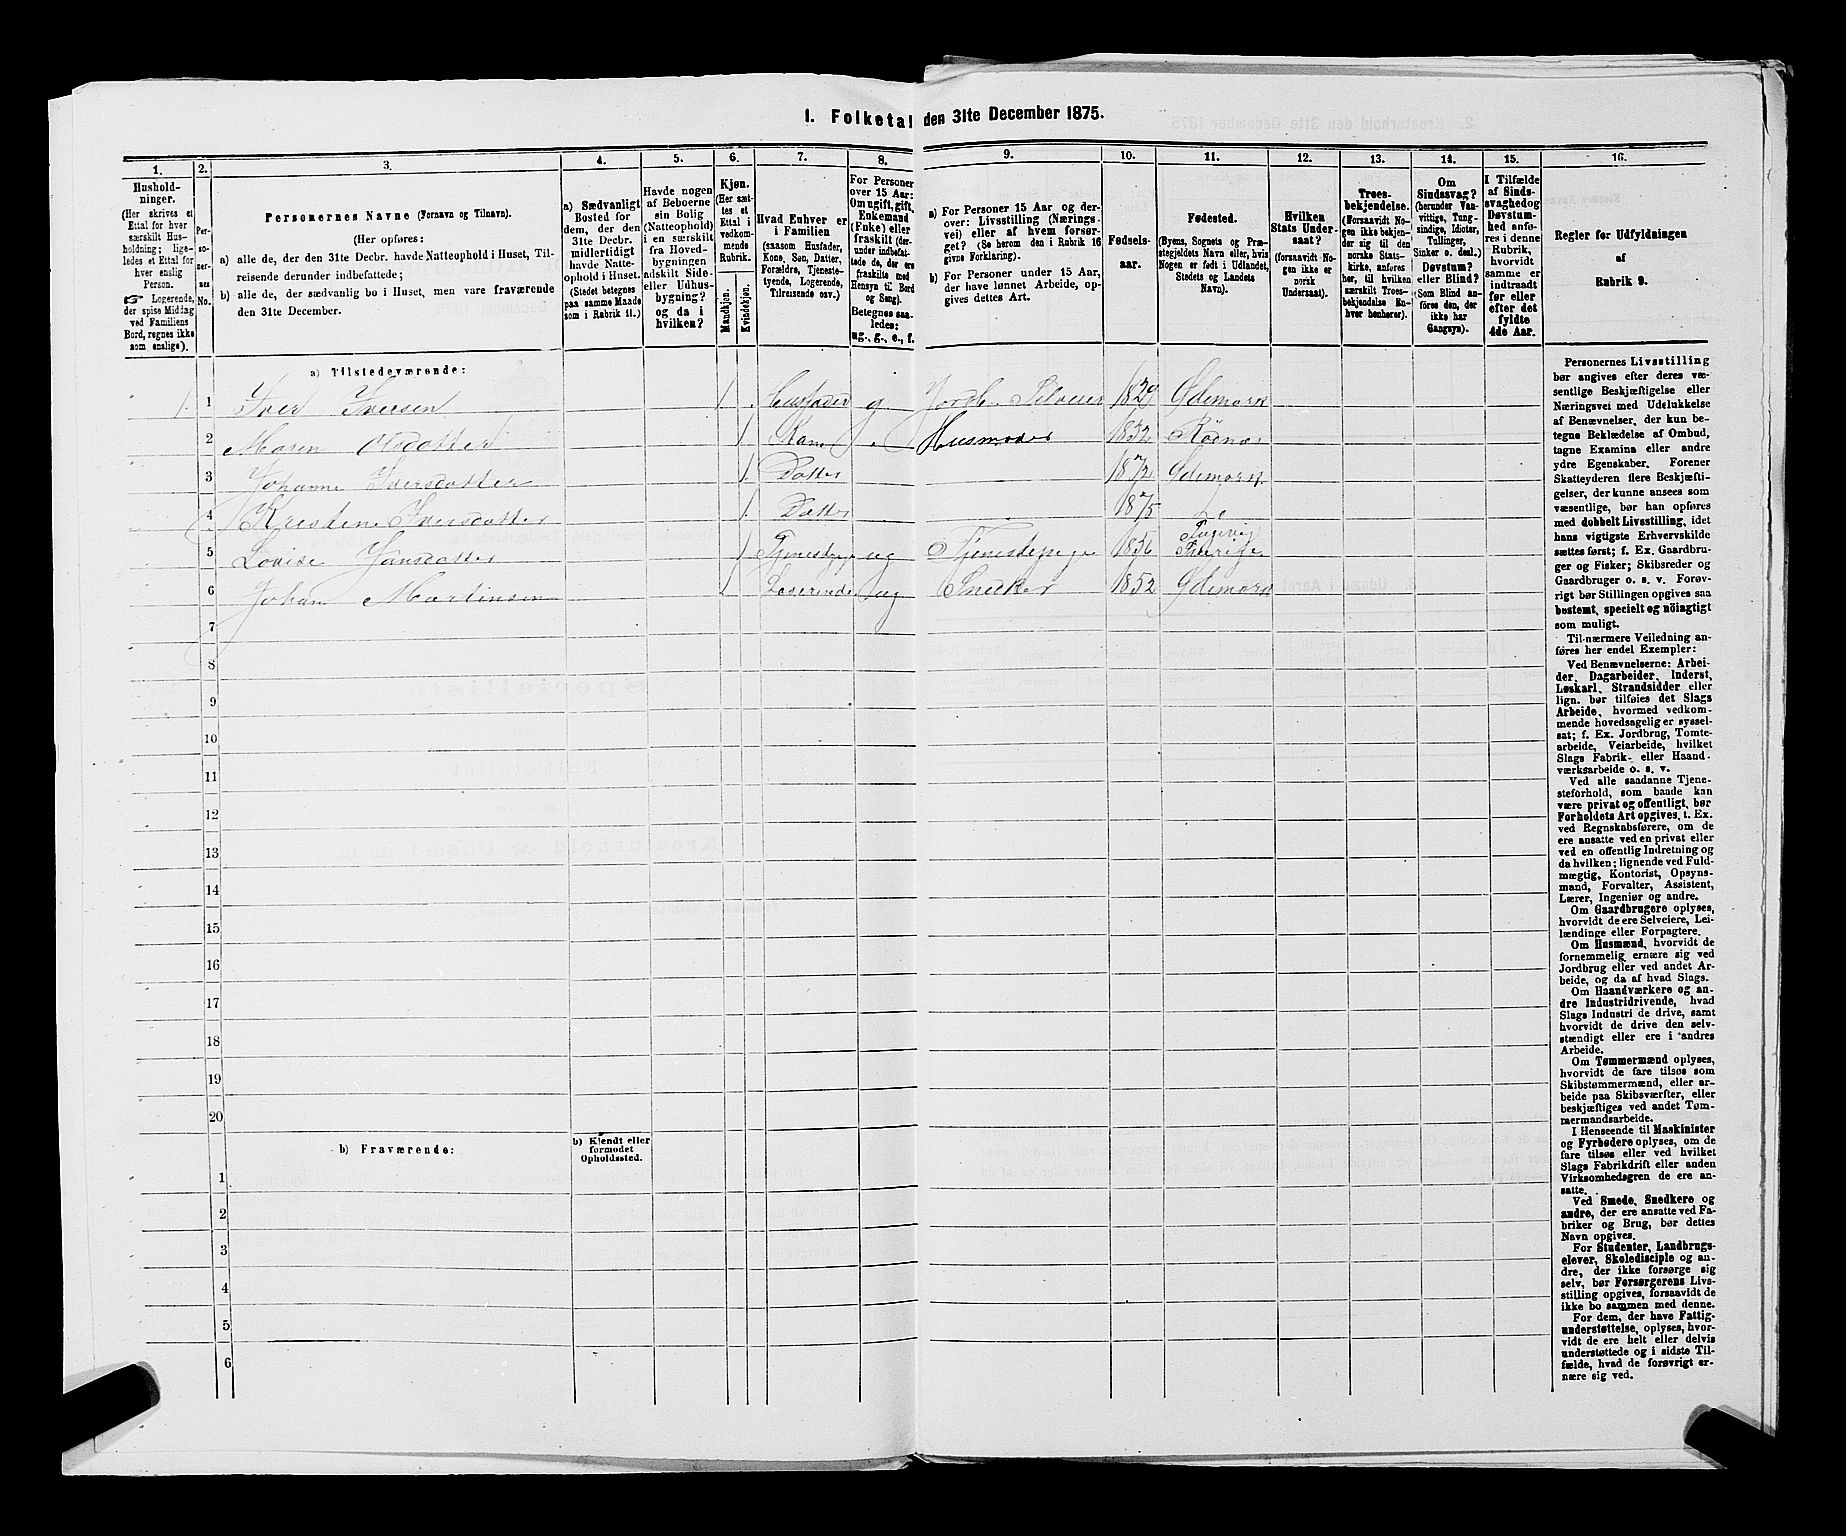 1. Folketal den 31te December 1875.
1.
2.
3.
4.
5.
6.
7.
8.
9.
10.
11.
12.
13.
14.
15.
16.
Hushold-
ninger.
(Her skrives et
Ettal for hver
særskilt Hus-
holdning; lige-
ledes et Ettal for
hver enslig
Person.
☞ Logerende,
der spise Middag
ved Familiens
Bord, regnes ikke
som enslige).
Per-
so-
ner-
nes
No.
Personernes Navne (Fornavn og Tilnavn).
(Her opføres:
a) alle de, der den 31te Decbr. havde Natteophold i Huset, Til-
reisende derunder indbefattede;
b) alle de, der sædvanlig bo i Huset, men vare fraværende
den 31te December.
a) Sædvanligt
Bosted for
dem, der den
31te Decbr.
midlertidigt
havde Natte-
ophold i Huset.
(Stedet betegnes
paa samme Maade
som i Rubrik 11.)
Havde nogen
af Beboerne
sin Bolig
(Natteophold)
i en særskilt
fra Hoved-
bygningen
adskilt Side-
eller Udhus-
bygning?
og da i
hvilken?
Kjøn.
(Her sæt-
tes et
Ettal i
vedkom-
mende
Rubrik.
Mandkjøn.
Kvindekjøn.
Hvad Enhver er
i Familien
(saasom Husfader,
Kone, Søn, Datter,
Forældre, Tjeneste-
tyende, Logerende,
Tilreisende osv.)
For Personer
over 15 Aar:
Om ugift, gift,
Enkemand
(Enke) eller
fraskilt (der-
under indbefat-
tede de, der ere
fraskilte med
Hensyn til Bord
og Seng).
Betegnes saa-
ledes:
ug., g., e., f.
a) For Personer 15 Aar og der-
over: Livsstilling (Nærings-
vei) eller af hvem forsør-
get? (Se herom den i Rubrik 16
givne Forklaring).
b) For Personer under 15 Aar,
der have lønnet Arbeide, op-
gives dettes Art.
Fødsels-
aar.
Fødested.
(Byens, Sognets og Præ-
stegjeldets Navn eller, hvis
Nogen er født i Udlandet,
Stedets og Landets
Navn).
Hvilken
Stats Under-
saat?
(forsaavidt No-
gen ikke er
norsk
Undersaat).
Troes-
bekjendelse.
(Forsaavidt No-
gen ikke bekjen-
der sig til den
norske Stats-
kirke, anføres
her, til hvilken
særskilt Troes-
bekjendelse En-
hver henhører).
Om
Sindssvag?
(herunder Van-
vittige, Tung-
sindige, Idioter,
Tullinger,
Sinker o. desl.)
Døvstum?
eller Blind?
(Som Blind an-
føres den, der
ikke har
Gangsyn).
I Tilfælde
af Sinds-
svaghed og
Døvstum-
hed anfø-
res i denne
Rubrik,
hvorvidt
samme er
indtraadt
før eller
efter det
fyldte
4de Aar.
Regler for Udfyldningen
af
Rubrik 9.
a) Tilstedeværende:
1. 1 Iver Iversen 1. Husfader g Jordbr. Selveier 1829 Ødemark
2 Maren Olsdatter 1 Kone Husmoder 1832 Rødnæs
3 Johanne Iversdatter 1. Datter 1872 Ødemark
4 Kristine Iversdatter 1. Datter 1875
5 Lovise Jansdatter 1 Tjenestepige ug Tjenestepige 1856 Sverige
6 Johan Martinsen 1 Loserende ug Snedker 1852 Ødemark
7
8
9
10
11
12
13
14
15
16
17
18
19
20
b) Fraværende:
b) Kjendt eller
formodet
Opholdssted.
1
2
3
4
5
6
Personernes Livsstilling
bør angives efter deres væ-
sentlige Beskjæftigelse eller
Næringsvei med Udelukkelse
af Benævnelser, der kun be-
tegne Beklædelse af Ombud,
tagne Examina eller andre
ydre Egenskaber. Forener
Skatteyderen flere Beskjæfti-
gelser, der kunne ansees som
væsentlige, bør han opføres
med dobbelt Livsstilling, idet
hans vigtigste Erhvervskilde
sættes først; f. Ex. Gaardbru-
ger og Fisker; Skibsreder og
Gaardbruger o. s. v. Forøv-
rigt bør Stillingen opgives saa
bestemt, specielt og nöiagtigt
som muligt.
Til nærmere Veiledning an-
føres her endel Exempler:
Ved Benævnelserne: Arbei-
der, Dagarbeider, Inderst,
Løskarl, Strandsidder eller
lign. bør tilføies det Slags
Arbeide, hvormed vedkom-
mende hovedsagelig er syssel-
sat; f. Ex. Jordbrug, Tomte-
arbeide, Veiarbeide, hvilket
Slags Fabrik- eller Haand-
værksarbeide o. s. v.
Ved alle saadanne Tjene-
steforhold, som baade kan
være privat og offentligt, bør
Forholdets Art opgives, t. Ex.
ved Regnskabsførere, om de
ere ansatte ved en privat eller
ved en offentlig Indretning og
da hvilken; lignende ved Fuld-
mægtig, Kontorist, Opsyns-
mand, Forvalter, Assistent,
Lærer, Ingeniør og andre.
Om Gaardbrugere oplyses,
hvorvidt de ere Selveiere, Lei-
lændinge eller Forpagtere.
Om Husmænd, hvorvidt de
fornemmelig ernære sig ved
Jordbrug eller ved andet Ar-
beide, og da af hvad Slags.
Om Haandværkere og an-
dre Industridrivende, hvad
Slags Industri de drive, samt
hvorvidt de drive den selv-
stændigt eller ere i andres
Arbeide.
Om Tømmermænd oplyses,
hvorvidt de fare tilsøs som
Skibstømmermænd, eller ar-
beide paa Skibsværfter, eller
beskjæftiges ved andet Tøm-
mermandsarbeide.
I Henseende til Maskinister
og Fyrbødere oplyses, om de
fare tilsøs eller ved hvilket
Slags Fabrikdrift eller anden
Virksomhedsgren de ere an-
satte.
Ved Smede, Snedkere og
andre, der ere ansatte ved Fa-
briker og Brug, bør dettes
Navn opgives.
For Studenter, Landbrugs-
elever, Skoledisciple og an-
dre, der ikke forsørge sig
selv, bør Forsørgerens Livs-
stilling opgives, forsaavidt de
ikke bo sammen med denne.
For dem, der have Fattig-
understøttelse, oplyses, hvor-
vidt de ere helt eller delvis
understøttede og i sidste Til-
fælde, hvad de forøvrigt er-
nære sig ved.